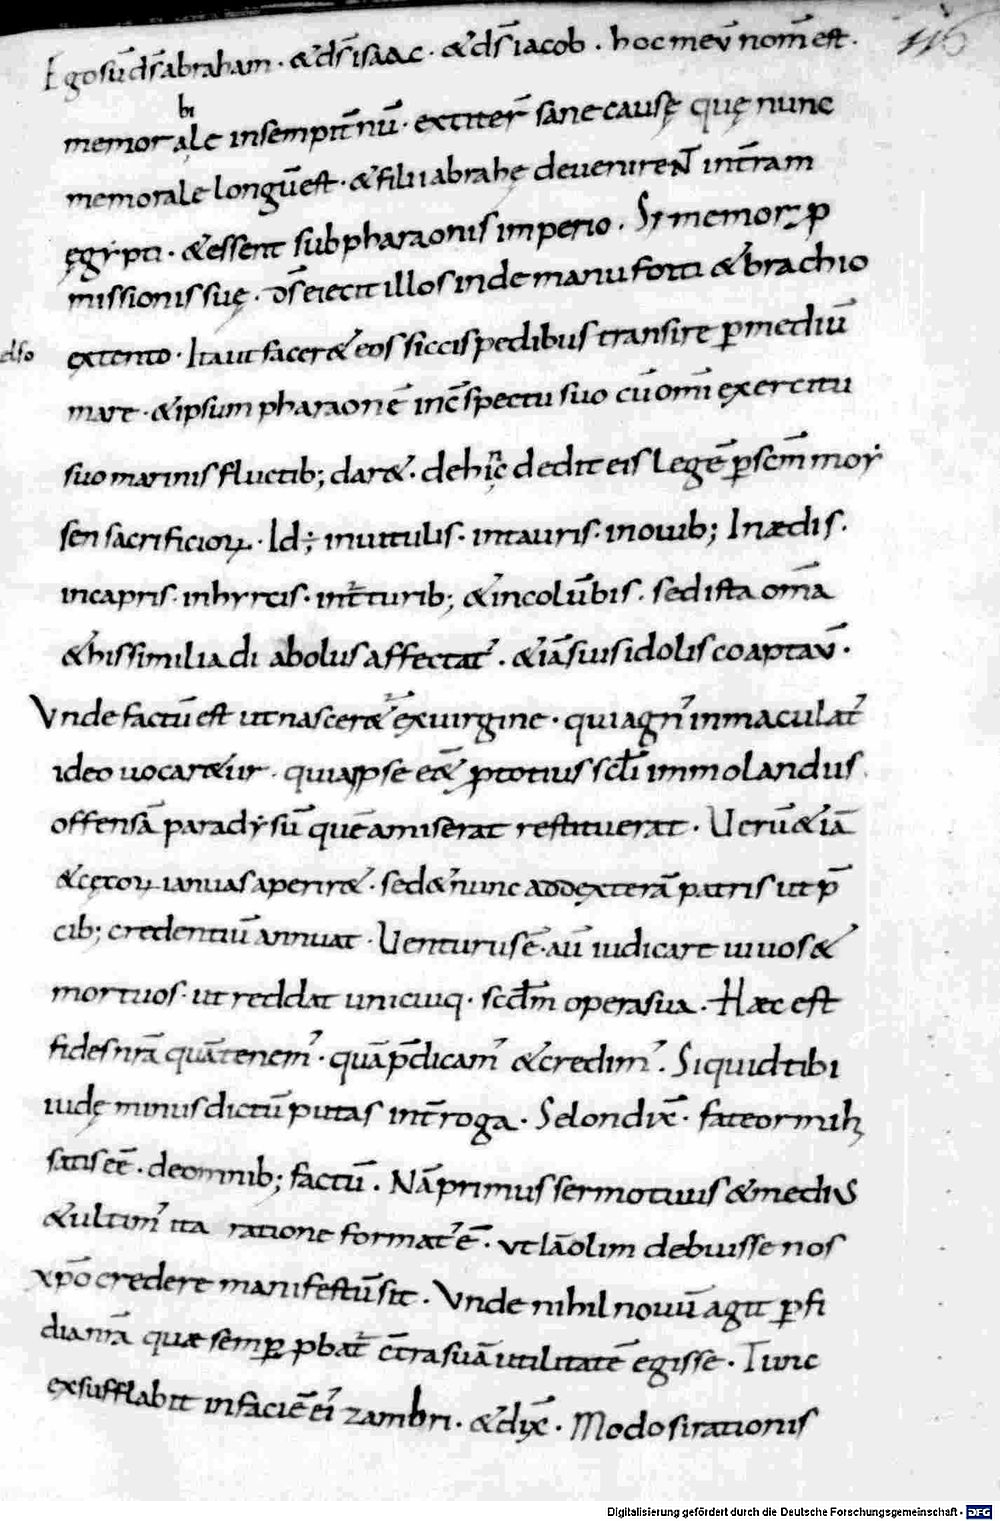 116
Ego sū ds̄ abraham · & ds̄ isaac · & ds̄ iacob · hoc meū nom̄ est ·
bi
memorale in sempit̄nū · extiter̄ sane causę quę nunc
memorale longū est · & filii abrahę devenireNT int̄ram
ęgẏpti · & essent sub pharaonis imperio · Si memorꝝ ꝑ
missionis suę · ds̄ eiecit illos inde manu forti & brachio
extento · Ita ut facer& eos siccis pedibus transire ꝑ mediū
mare · & ipsum pharaonē inc̄spectu suo cū om̄i exercitu
suo marinis fluctib; dar& · dehīc dedit eis legē ꝑ sc̄m moẏ
sen sacrificioꝝ · Id ÷ inuitulis · intauris · inouib; In ædis ·
incapris · inhyrcis · int̄turib; & incolūbis · sed ista om̄a
& his similia di abolus affectat᾽ · & iā suis idolis coaptav̄ ·
Vnde factū est ut nascer& ex uirgine · qui agn᾽ inmaculat᾽
ideo uocar&ur · quia ipse e& ꝓ totius sc̄li immolandus
offensā paradẏsū quē amiserat restituerat · Uerū & iā
& cęloꝝ ianuas aperir& · sed & nunc addexterā patris ut p̄
cib; credentiū annuat · Uenturus ē · aū iudicare uiuos &
mortuos · ut reddat unicuiq · scdm̄ opera sua · Hæc est
fides nr̄a quā tenem᾽ · quā p̄dicam᾽ & credim᾽ · Si quid tibi
iudę minus dictū putas int̄roga · Selon dix̄ · fateor mihꝫ
satis eē · de omnib; factū · Nā primus sermo tuus & medius
& ultim᾽ ita ratione format᾽ ē · ut iā olim debuisse nos
xp̄o credere manifestū sit · Vnde nihil nouū agit ꝑfi
dia nr̄a quæ semꝑ ꝓbat᾽ c̄tra suā utilitatē egisse · Tunc
exsufflabit in faciē ei᾽ zambri · & dix̄ · Modo si rationis
Digitalisierung gefördert durch die Deutsche Forschungsgemeinschaft - DFG